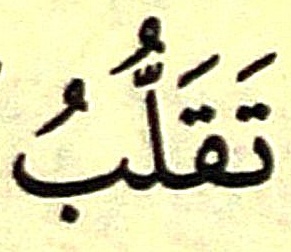 تَقَلُّبُ